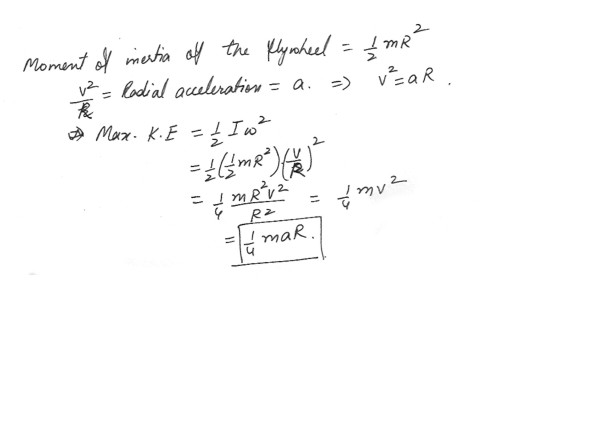 Moment of inertia of the flywheel = 1/2 mR²
v²/R = Radial acceleration = a. => v² = aR.
=> Max. K.E = 1/2 Iω²
= 1/2 (1/2 mR²) (v/R)²
= 1/4 mR²v²/R² = 1/4 mv²
= 1/4 maR.